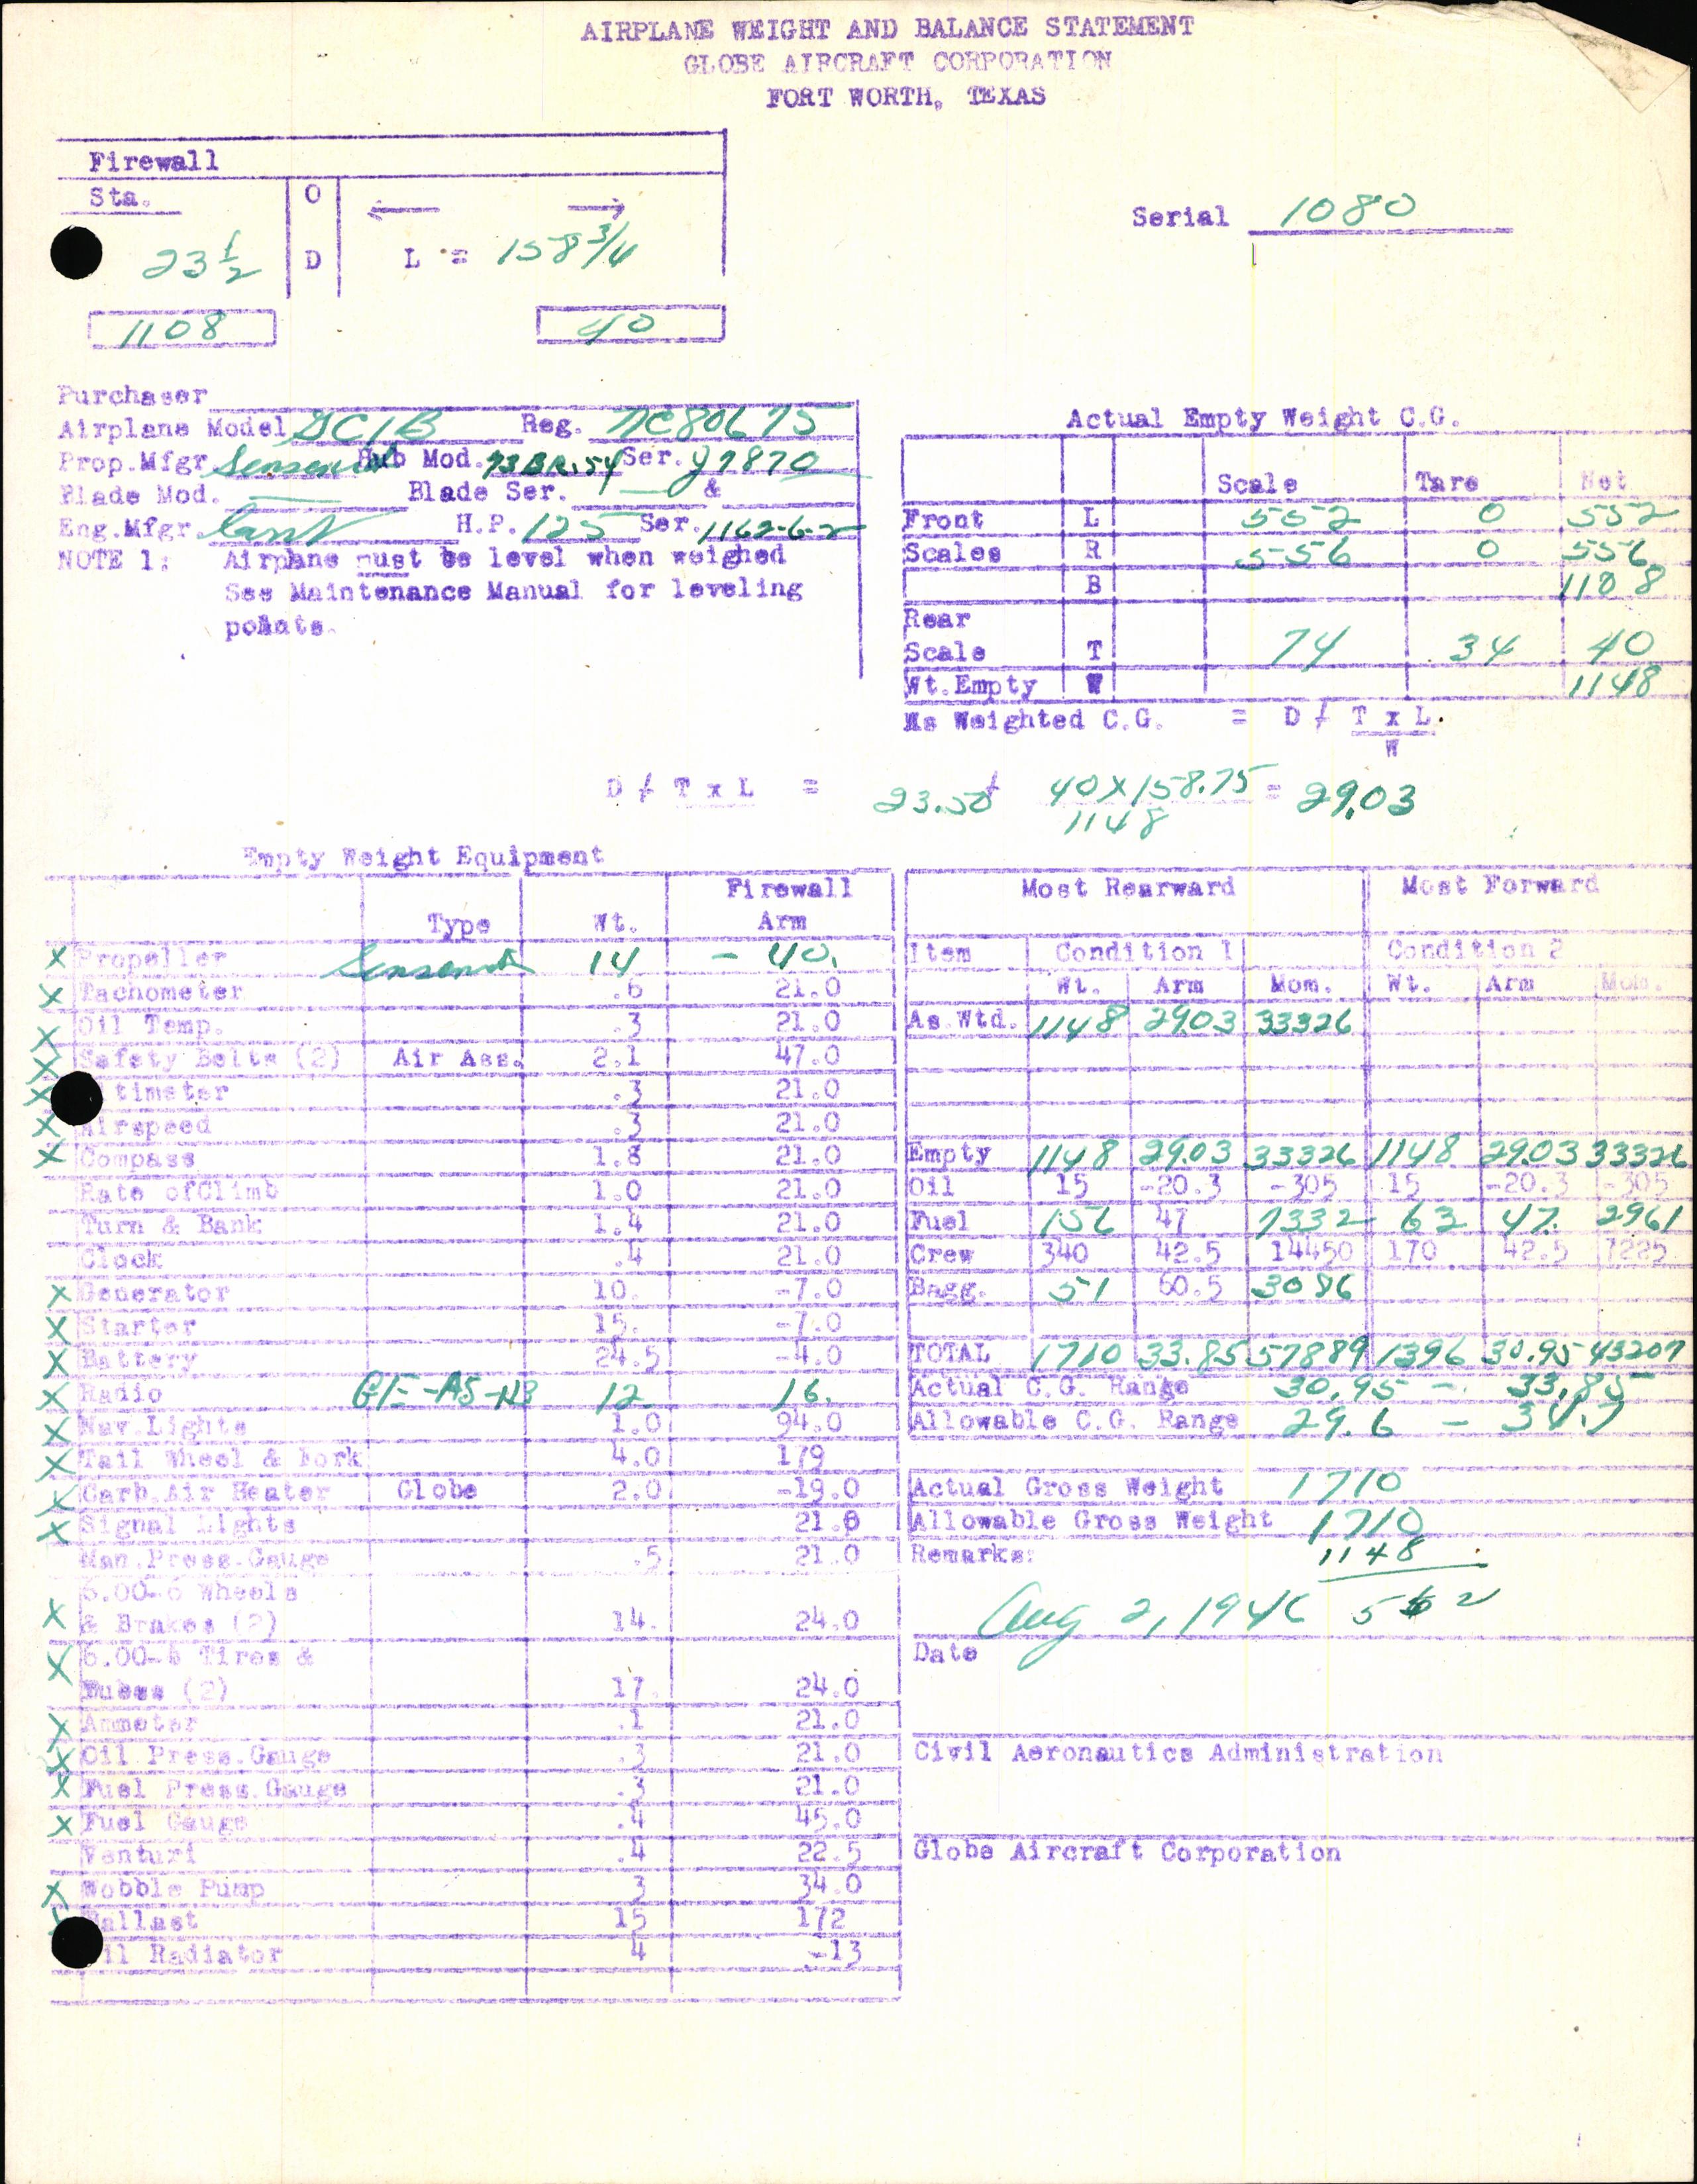 AIRPLANE WEIGHT AND BALANCE STATEMENT
GLOBE AIRCRAFT CORPORATION
FORT WORTH, TEXAS
Firewall
Sta. O ← →
23 1/2 D L = 158 3/4
1108 40
Serial 1080
Purchaser
Airplane Model GC1B Reg. NC80675
Prop.Mfgr Sensenich Hub Mod. 73BR.54 Ser. 97870
Blade Mod. — Blade Ser. — &
Eng.Mfgr. Cont H.P. 125 Ser. 1162-6-2
NOTE 1: Airplane must be level when weighed
See Maintenance Manual for leveling
points.
Actual Empty Weight C.G.
Scale Tare Net
Front L 552 0 552
Scales R 556 0 556
B 1108
Rear
Scale T 74 34 40
Wt.Empty W 1148
As Weighted C.G. = D / T x L.
W
D / T x L = 23.50 + 40 X 158.75 = 29.03
1148
Empty Weight Equipment
Type Wt. Firewall Arm
X Propeller Sensenich 14 - 40.
X Tachometer .6 21.0
X Oil Temp. .3 21.0
X Safety Belts (2) Air Ass. 2.1 47.0
X ltimeter .3 21.0
X Airspeed .3 21.0
X Compass 1.8 21.0
Rate ofClimb 1.0 21.0
Turn & Bank 1.4 21.0
Clock .4 21.0
X Generator 10. -7.0
X Starter 15. -7.0
X Battery 24.5 -4.0
X Radio GE-AS-1B 12 16.
X Nav.Lights 1.0 94.0
X Tail Wheel & Fork 4.0 179
X Carb.Air Heater Globe 2.0 -19.0
X Signal Lights 21.0
Man.Press.Gauge .5 21.0
6.00-6 Wheels
X & Brakes (2) 14. 24.0
X 6.00-6 Tires &
Tubes (2) 17. 24.0
X Ammeter .1 21.0
X Oil Press.Gauge .3 21.0
X Fuel Press.Gauge .3 21.0
X Fuel Gauge .4 45.0
Venturi .4 22.5
X Wobble Pump 3 34.0
Ballast 15 172
il Radiator 4 -13
Most Rearward Most Forward
Item Condition 1 Condition 2
Wt. Arm Mom. Wt. Arm Mom.
As Wtd. 1148 29.03 33326
Empty 1148 29.03 33326 1148 29.03 33326
Oil 15 -20.3 -305 15 -20.3 -305
Fuel 156 47 7332 63 47. 2961
Crew 340 42.5 14450 170 42.5 7225
Bagg. 51 60.5 3086
TOTAL 1710 33.85 57889 1396 30.95 43207
Actual C.G. Range 30.95 - 33.85
Allowable C.G. Range 29.6 - 34.7
Actual Gross Weight 1710
Allowable Gross Weight 1710
Remarks: 1148
Aug 2, 1946 562
Date
Civil Aeronautics Administration
Globe Aircraft Corporation